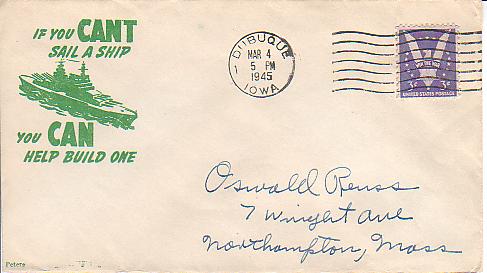 IF YOU CAN'T
SAIL A SHIP
YOU CAN
HELP BUILD ONE
DUBUQUE
1
MAR 4
5 PM
1945
IOWA
WIN THE WAR
3¢ 3¢
UNITED STATES POSTAGE
Oswald Reuss
7 Wright Ave
Northampton, Mass
Peters